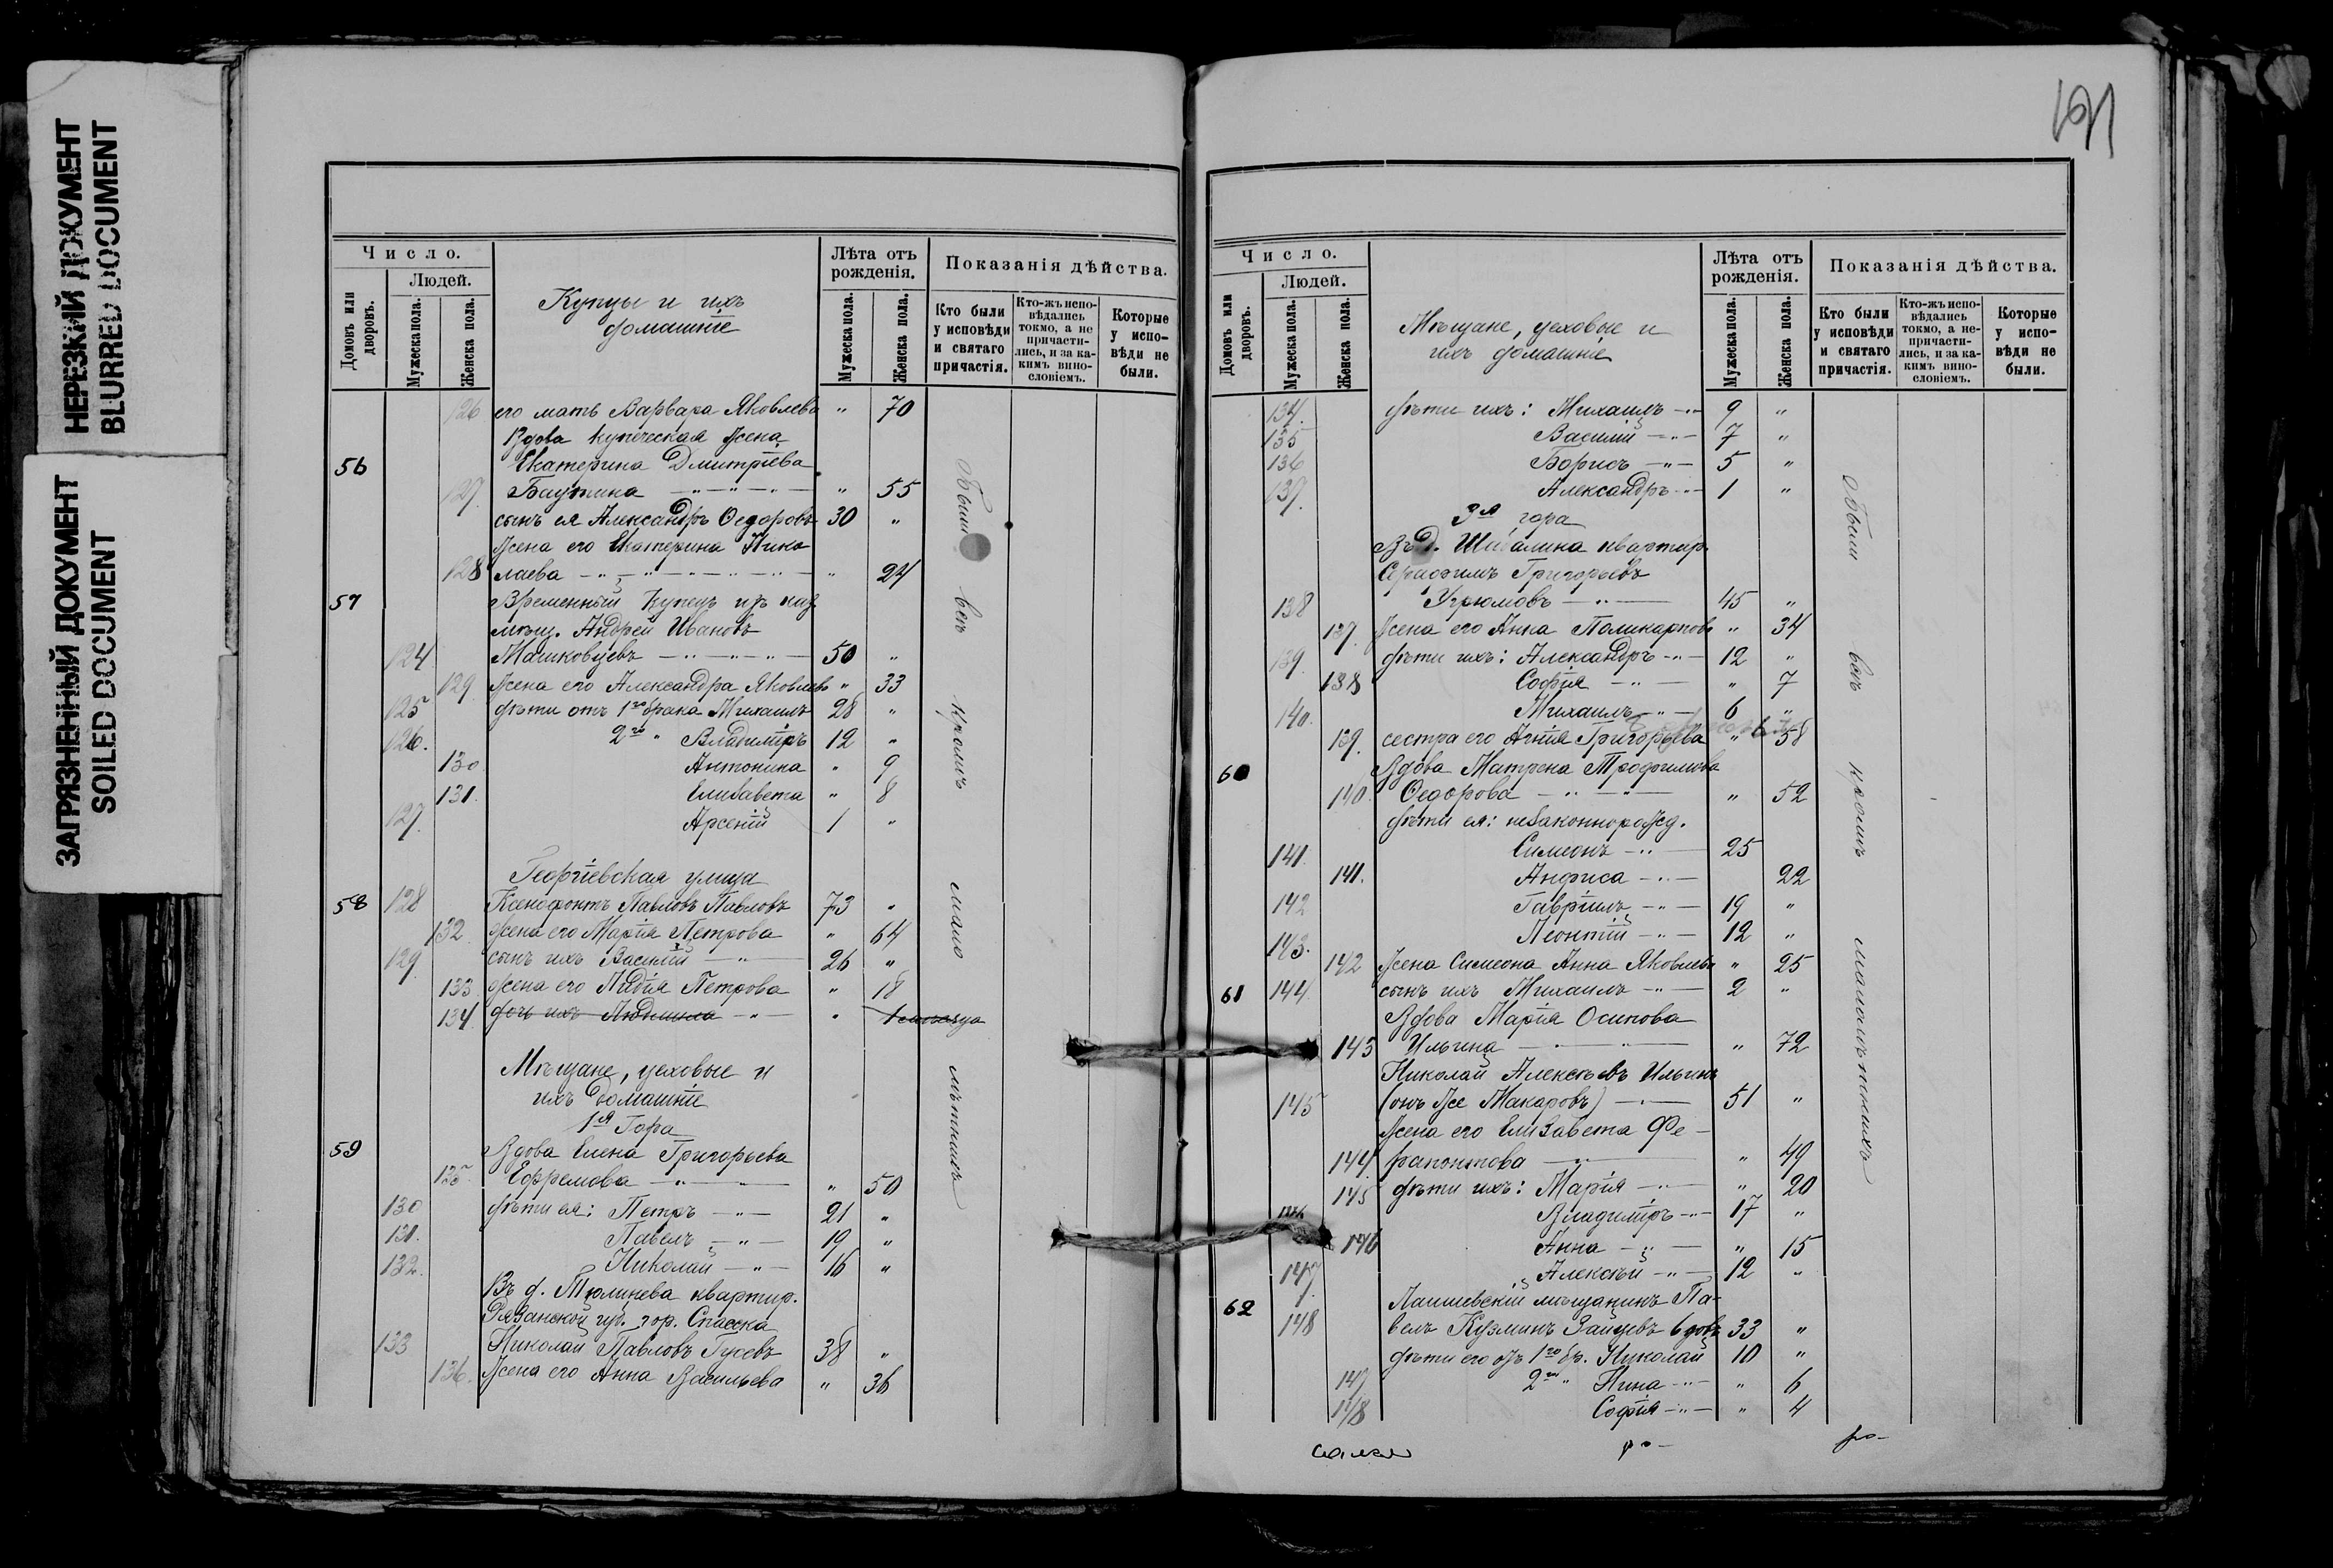 НЕРЕЗКИЙ ДОКУМЕНТ
BLURRED DOCUMENT
ЗАГРЯЗНЕННЫЙ ДОКУМЕНТ
SOILED DOCUMENT
Число.
Людей.
Домовъ или дворовъ.
Мужеска пола.
Женска пола.
Купцы и ихъ
домашніе
Лѣта отъ рожденія.
Мужеска пола.
Женска пола.
Показанія дѣйства.
Кто были у исповѣди и святаго причастія.
Кто-жъ испо-вѣдались токмо, а не причасти-лись, и за ка-кимъ вино-словіемъ.
Которые у испо-вѣди не были.
126 его мать Варвара Яковлева " 70
Вдова купеческая жена
56 Екатерина Дмитріева
127 Баутина " 55
сынъ ея Александръ Ѳедоровъ 30 "
Жена его Екатерина Нико
128 лаева " 24
57 Временный купецъ изъ каз.
мѣщ. Андрей Ивановъ
124 Машковцевъ 50 "
129 Жена его Александра Яковлева " 33
125 дѣти отъ 1го брака Михаилъ 28 "
126. 2го " Владиміръ 12 "
130 Антонина " 9
131. Елизавета " 8
127 Арсеній 1 "
Георгіевская улица
58 128 Ксенофонтъ Павловъ Павловъ 73 "
132 Жена его Марія Петрова " 64
129 сынъ ихъ Василій 26 "
133 Жена его Лидія Петрова " 18
134 дочь ихъ Людмила "
Мѣщане, цеховые и
ихъ домашніе
1я Гора
59 Вдова Елена Григорьева
135 Ефремова " 50
130 дѣти ея: Петръ 21 "
131. Павелъ 19 "
132. Николай 16 "
Въ д. Тюлинева квартир.
Рязанской губ. гор. Спасска
133 Николай Павловъ Гусевъ 38 "
136. Жена его Анна Васильева " 36
Были всѣ кромѣ мало лѣтнихъ
191
Число.
Людей.
Домовъ или дворовъ.
Мужеска пола.
Женска пола.
Мѣщане, цеховые и
ихъ домашніе
Лѣта отъ рожденія.
Мужеска пола.
Женска пола.
Показанія дѣйства.
Кто были у исповѣди и святаго причастія.
Кто-жъ испо-вѣдались токмо, а не-причасти-лись, и за ка-кимъ вино-словіемъ.
Которые у испо-вѣди не были.
134. дѣти ихъ: Михаилъ 9 "
135 Василій 7 "
136 Борисъ 5 "
137. Александръ 1 "
3я гора
Въ д. Шибалина квартир.
Серафимъ Григорьевъ
138 Угрюмовъ 45 "
137. Жена его Анна Поликарпова " 34
139. дѣти ихъ: Александръ 12 "
138 Софія " 7
140. Михаилъ 6 "
139. сестра его Агнія Григорьева " 58
60 Вдова Матрена Трофимова
140 Ѳедорова " 52
дѣти ея: незаконнорожд.
141. Симеонъ 25
141. Анфиса 22
142 Гавріилъ 19 "
143. Леонтій 12 "
142 Жена Симеона Анна Яковлева " 25
61 144 сынъ ихъ Михаилъ 2 "
Вдова Марія Осипова
143 Ильина " 72
Николай Алексѣевъ Ильинъ
145 (онъ же Макаровъ) 51 "
Жена его Елизавета Фе-
144 рапонтова " 49
145 дѣти ихъ: Марія " 20
146 Владиміръ 17 "
146 Анна " 15
147. Алексѣй 12 "
62 Лаишевскій мѣщанинъ Па-
148 велъ Кузминъ Зайцевъ вдовъ 33 "
дѣти его отъ 1го бр. Николай 10 "
147 2го " Нина " 6
148 Софія " 4
Были всѣ кромѣ малолѣтнихъ